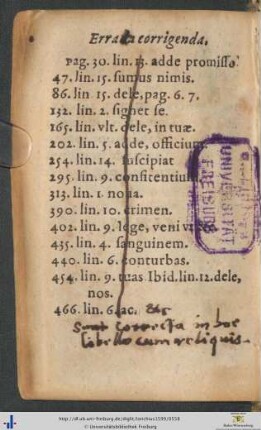 Errata corrigenda.
pag. 30. lin. 13. adde promisso.
47. lin. 15. sumus nimis.
86. lin 15. dele, pag. 6. 7.
132. lin. 2. signet se.
165. lin. vlt. dele, in tuæ.
202. lin. 5. adde, officium
254. lin. 14. suscipiat
295. lin. 9. confitentium
313. lin. 1. noua.
390. lin. 10. crimen.
402. lin. 9. lege, veni
435. lin. 4. sanguinem.
440. lin. 6. conturbas.
454. lin. 9. tuas Ibid. lin. 12. dele,
nos.
466. lin. 6. ac. &c
Sunt correcta in hoc
libello cum reliquis.
UNIVERSITÄT
FREIBURG
© Universitätsbibliothek Freiburg